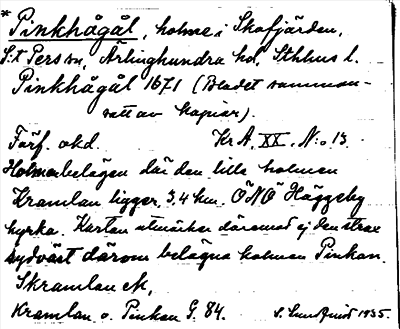 * Pinkhågål, holme i Skofjärden,
S:t Pers sn, Ärlinghundra hd, Sthlms l.
Pinkhågål 1671 (Bladet samman-
satt av kopior).
Förf. okd. Kr A. XX. N:o 13.
Holmen belägen där den lilla holmen
Kramlan ligger 3.4 km. ÖNÖ Häggeby
kyrka. Kartan utmärker däremot ej den strax
sydväst därom belägna holmen Pinkan.
Skramlan ek,
Kramlan o. Pinkan G. 84. S. Lundqvist 1935.